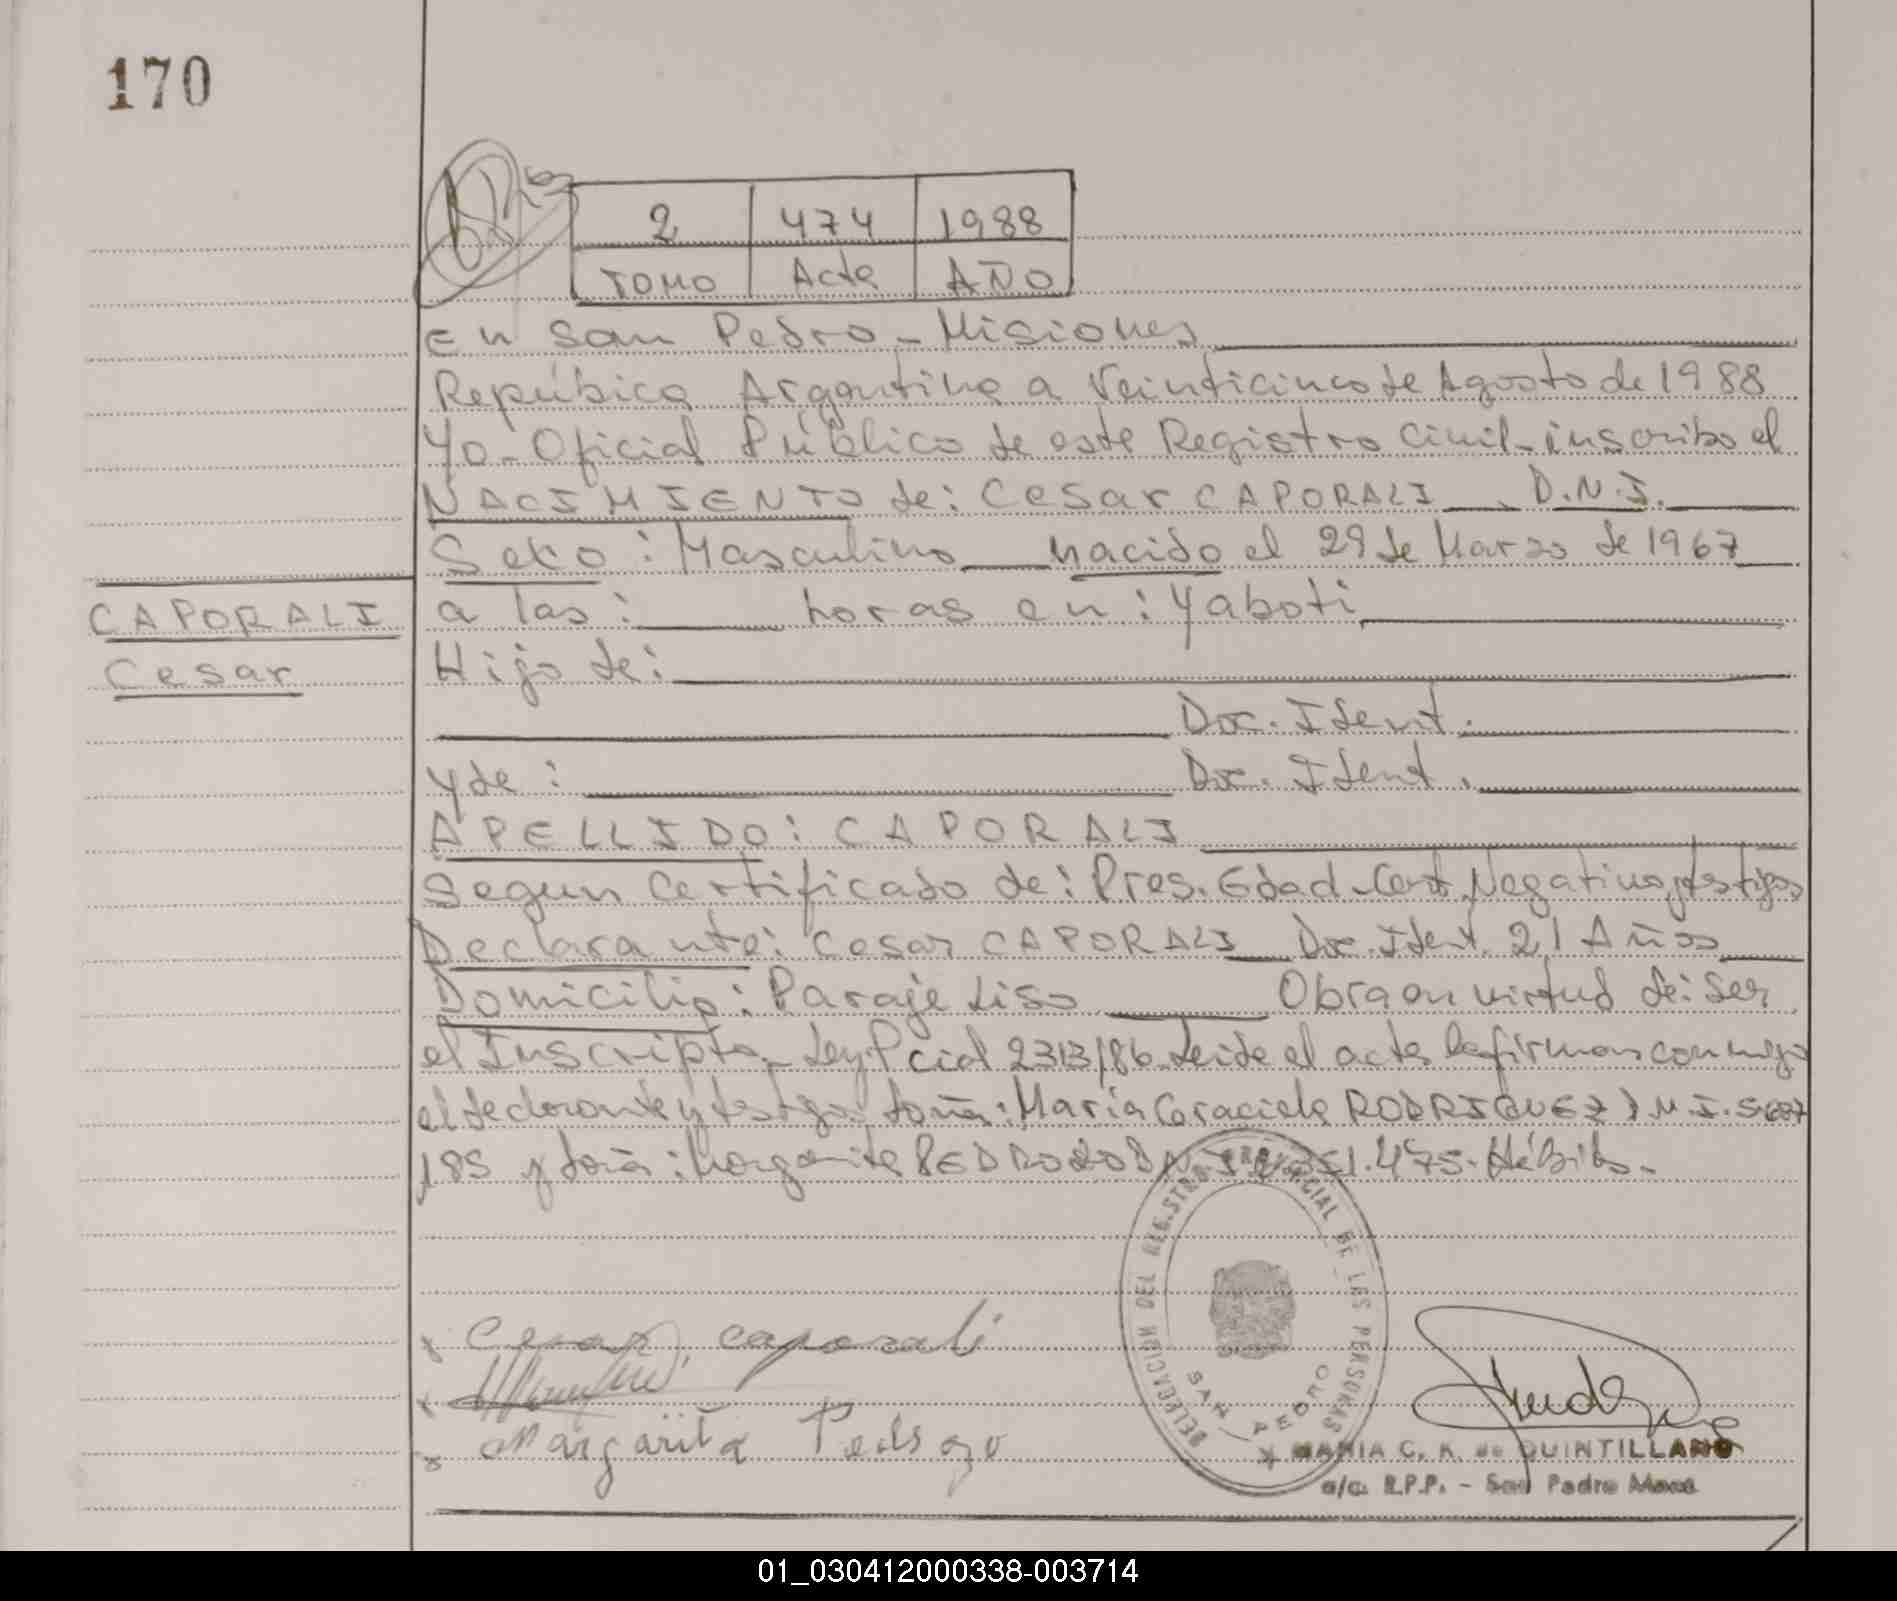 170
2 474 1988
TOMO Acta AÑO
En San Pedro - Misiones
Repúbica Argentina a Veinticinco de Agosto de 1988
Yo - Oficial Público de este Registro Civil - inscribo el
NACIMIENTO de: Cesar CAPORALI D.N.I.
Sexo: Masculino nacido el 29 de Marzo de 1967
CAPORALI
a las: horas en: Yaboti
Cesar
Hijo de:
Doc. Ident.
y de: Doc. Ident.
APELLIDO: CAPORALI
Segun Certificado de: Pres. Edad - Cert. Negativo y testigos
Declarante: Cesar CAPORALI Doc. Ident. 21 Años
Domicilio: Paraje Liso Obra en virtud de: Ser
el Inscripto - Ley Pcial 2313/86. Leida el acta la firman conmigo
el declarante y testigos doña: Maria Graciela RODRIGUEZ D.N.I. 5.687
185 y doña: Margarita PEDROZO D.N.I. 351.475. Hábiles.
Cesar caporali
Margarita Pedrozo
DELEGACION DEL REGISTRO PROVINCIAL DE LAS PERSONAS
SAN PEDRO
MARIA C. K. de QUINTILLANO
a/c. R.P.P. - San Pedro Mnes
01_030412000338-003714